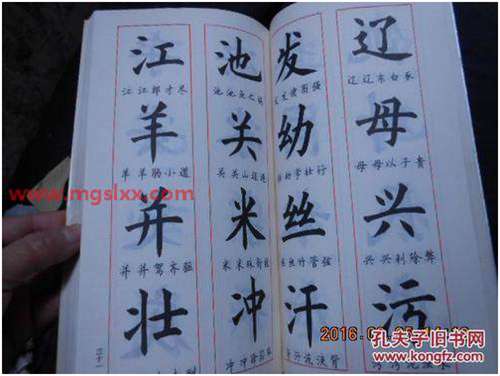 江 池 发 辽
江 江郎才尽
池 池鱼之殃
发 发愤图强
辽 辽东白豕
羊 关 幼 母
羊 羊肠小道
关 关山迢递
幼 幼学壮行
母 母以子贵
并 米 丝 兴
并 并驾齐驱
米 米珠薪桂
丝 丝竹管弦
兴 兴利除弊
壮 冲 汗 污
冲 冲
汗 汗流浃背
三十一
www.mgslxx.com
2016
孔夫子旧书网
KONGFZ.COM